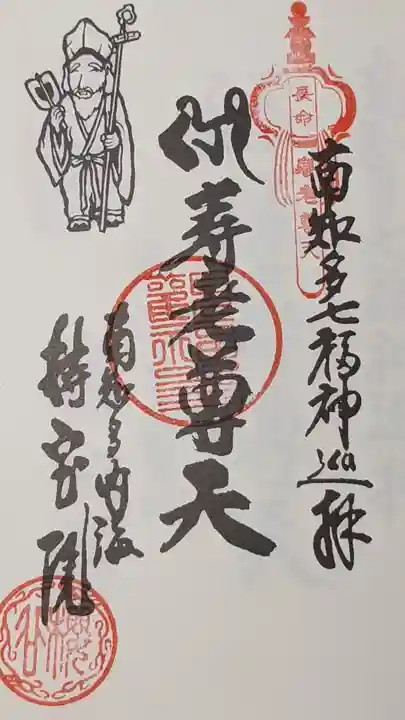 南知多七福神巡拝
長命
寿老尊天
寿老尊天
南知多内海
持宝院